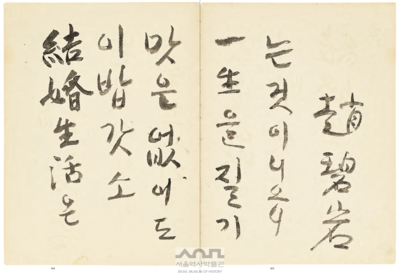 結婚生活은
이밥갓소
맛은 없어도
一生을 질기
는것이니
趙碧岩
서울역사박물관
SEOUL MUSEUM OF HISTORY